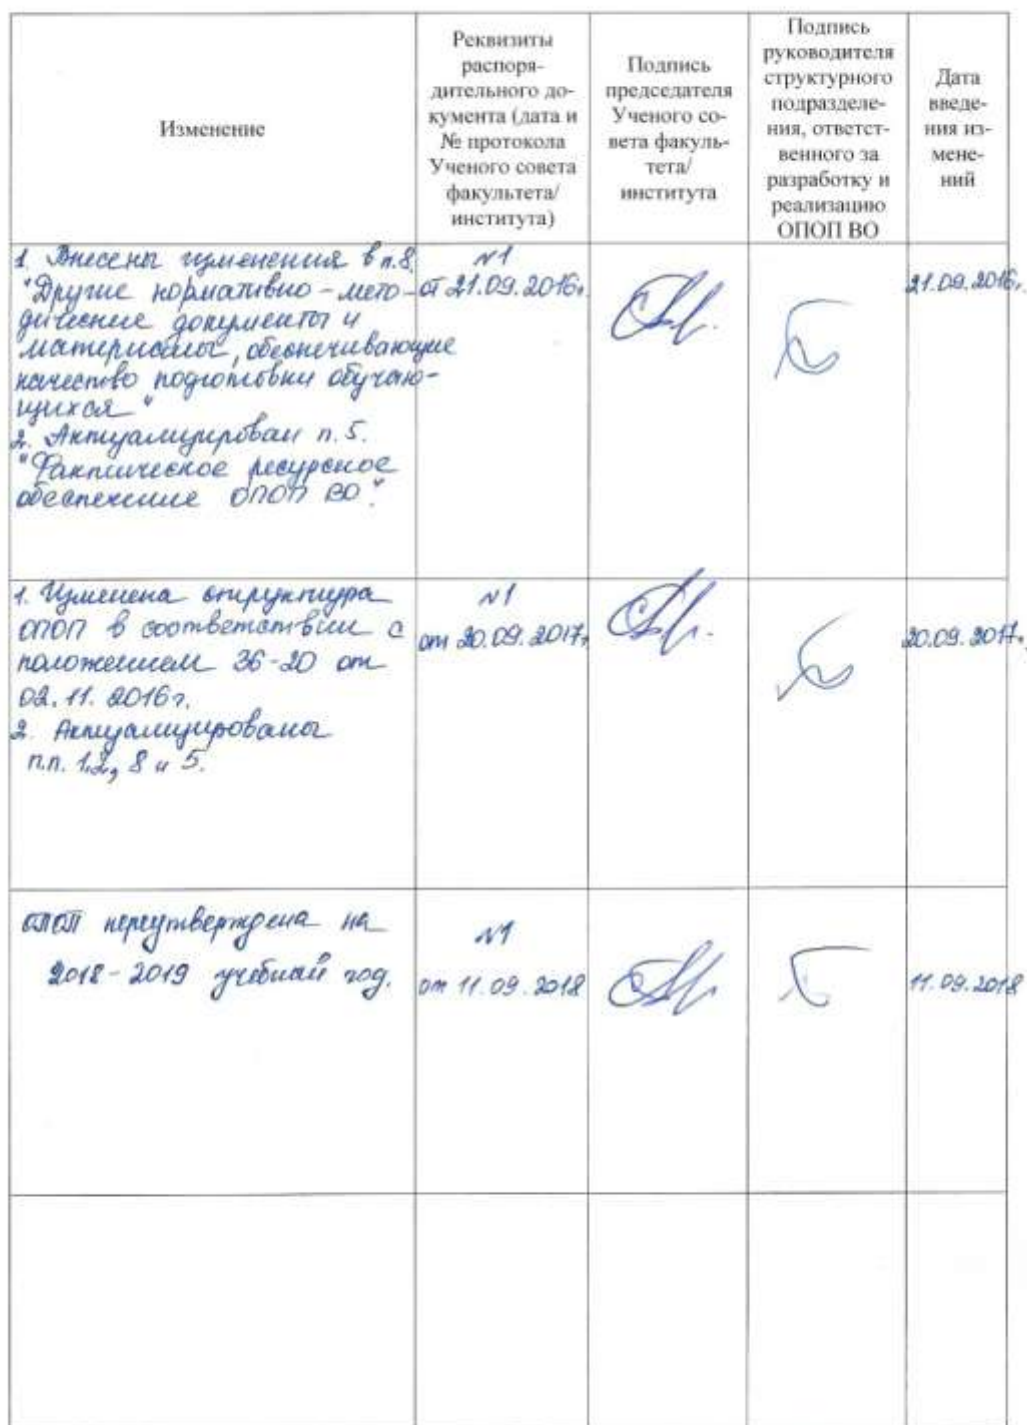 Изменение
Реквизиты
распоря-
дительного до-
кумента (дата и
№ протокола
Ученого совета
факультета/
института)
Подпись
председателя
Ученого со-
вета факуль-
тета/
института
Подпись
руководителя
структурного
подразделе-
ния, ответст-
венного за
разработку и
реализацию
ОПОП ВО
Дата
введе-
ния из-
мене-
ний
1. Внесены изменения в п.8.
"Другие нормативно-мето-
дические документы и
материалы, обеспечивающие
качество подготовки обучаю-
щихся"
2. Актуализирован п.5.
"Фактическое ресурсное
обеспечение ОПОП ВО."
№1
от 21.09.2016г.
21.09.2016г.
1. Изменена структура
ОПОП в соответствии с
положением 36-20 от
02.11.2016г.
2. Актуализированы
п.п. 1.2, 8 и 5.
№1
от 20.09.2017г.
20.09.2017г.
ОПОП переутверждена на
2018-2019 учебный год.
№1
от 11.09.2018
11.09.2018